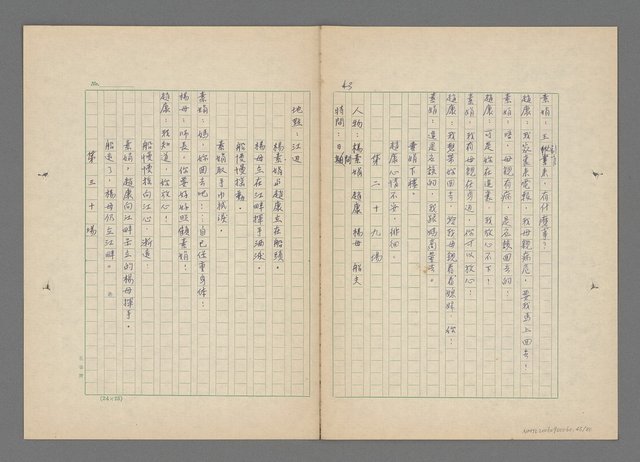 43
素娟:王秘書來,有什麼事?
趙康:我家裏來電報,我母親病危,要我馬上回去!
素娟:哦,母親有病,是應該回去的!
趙康:可是妳在這裏,我放心不下!
素娟:我有母親在身邊,你可以放心!
趙康:我想帶妳回去,讓我母親看看媳婦,妳!
素娟:這是應該的,我跟媽商量去。
素娟下樓。
趙康心情不安,徘徊。
第二十九場
人物:楊素娟 趙康 楊母 船夫
時間:日
地點:江邊
楊素娟與趙康立在船頭。
楊母立在江畔揮手洒淚。
素娟取手巾拭淚。
船慢慢搖動。
素娟:媽,妳回去吧!自己保重身体!
楊母:師長,你要好好照顧素娟!
趙康:我知道,妳放心!
船慢慢搖向江心,漸遠!
素娟,趙康向江畔岳立的楊母揮手。
船走了,楊母仍立江畔。
第三十場
No.
(24×25)